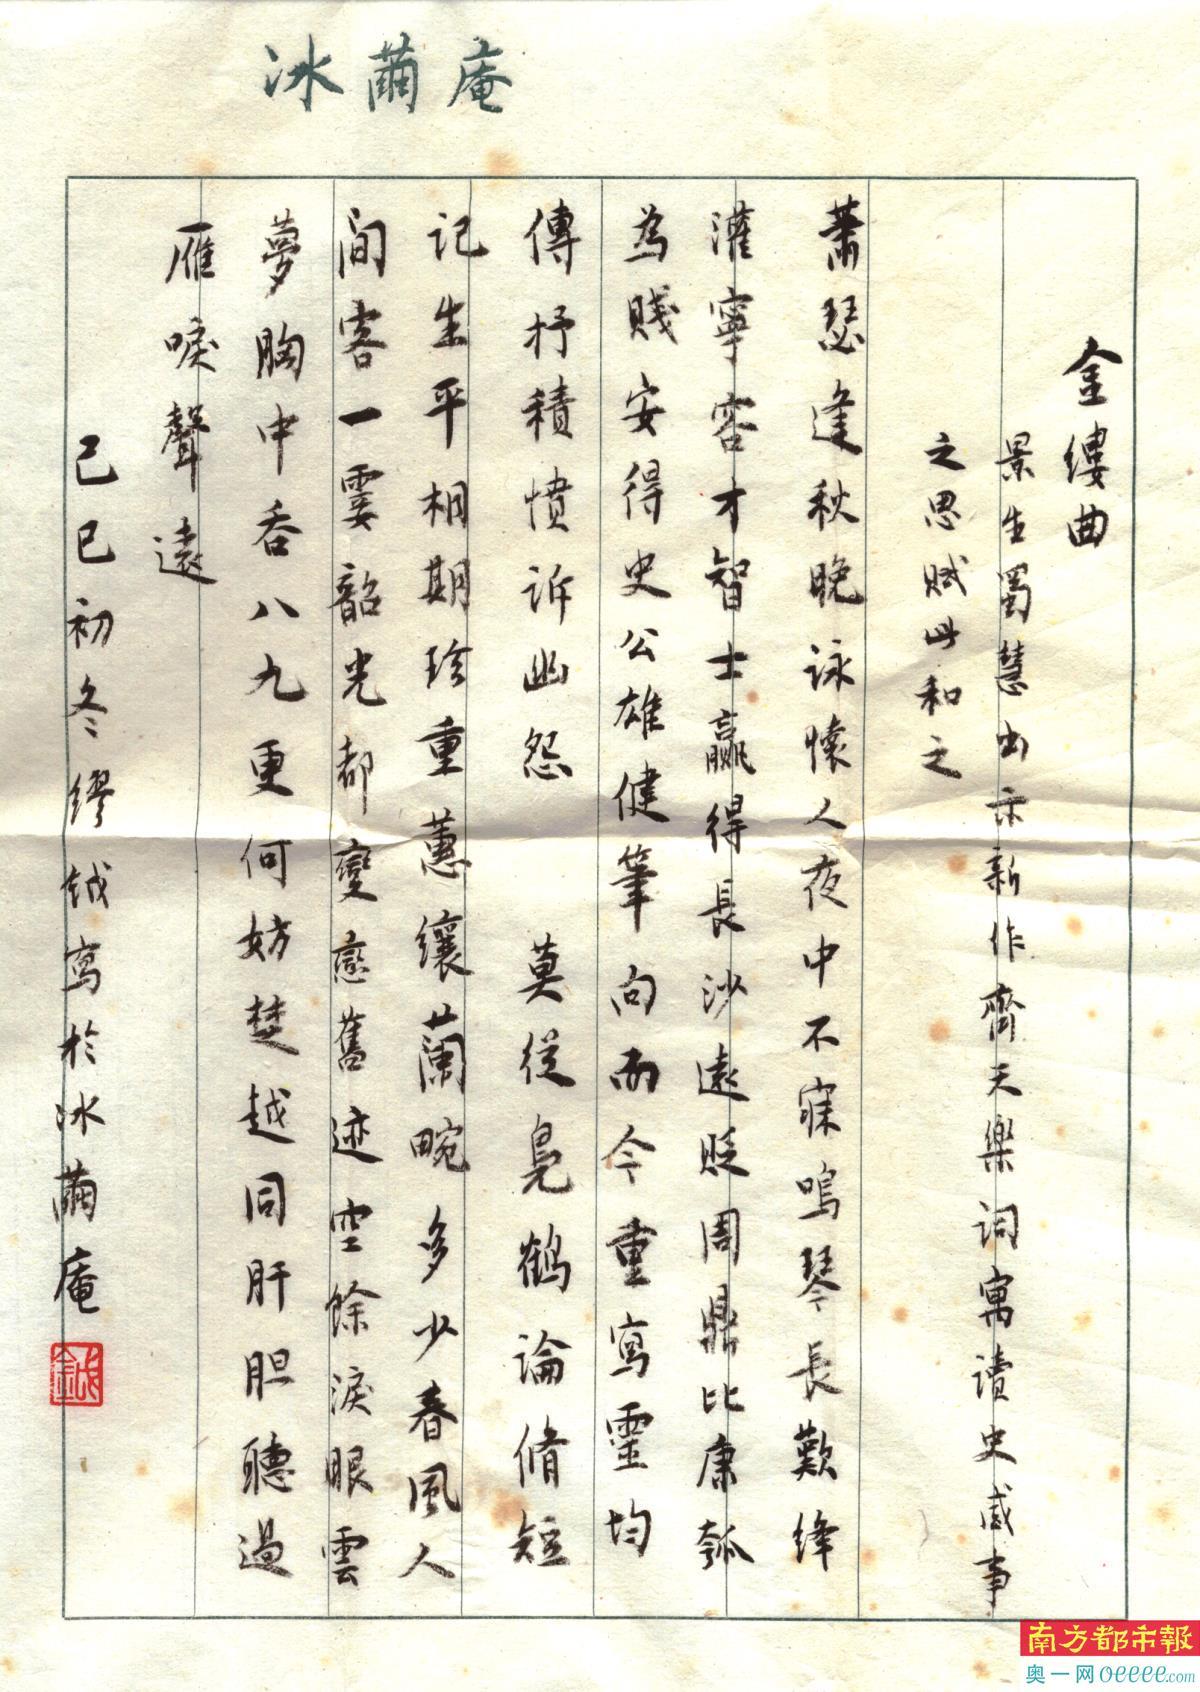 冰繭庵
金縷曲
景生蜀慧出示新作齊天樂詞寓讀史感事
之思賦此和之
蕭瑟逢秋晚詠懷人夜中不寐鳴琴長歎絳
灌寧容才智士贏得長沙遠貶周鼎比康瓠
為賤安得史公雄健筆向而今重寫靈均
傳抒積憤訴幽怨 莫從鳧鶴論脩短
记生平相期珍重蕙纕蘭畹多少春風人
間客一霎韶光都變戀舊迹空餘淚眼雲
夢胸中吞八九更何妨楚越同肝胆聽過
雁唳聲遠
己巳初冬繆鉞寫於冰繭庵
鉞
南方都市報
奥一网oeeee.com